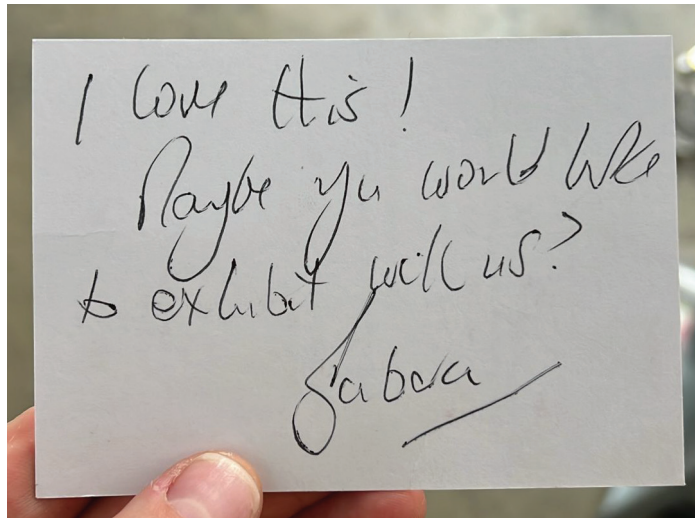 I love this!
Maybe you would like
to exhibit with us?